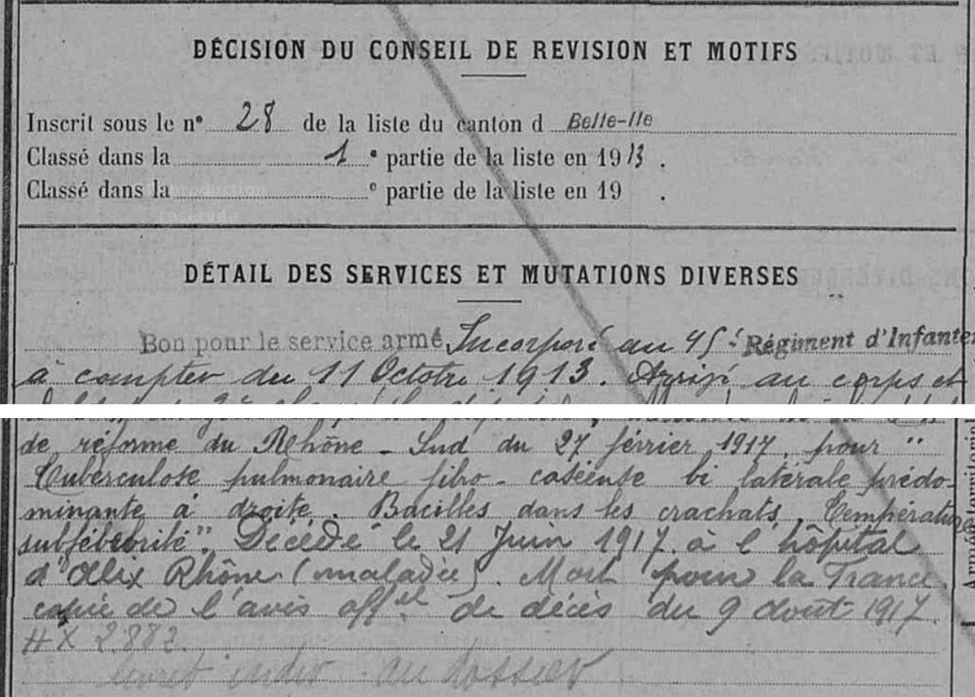 DÉCISION DU CONSEIL DE REVISION ET MOTIFS
Inscrit sous le n° 28 de la liste du canton d Belle-Ile
Classé dans la 1 e partie de la liste en 1913.
Classé dans la e partie de la liste en 19 .
reproduction
réservée
DÉTAIL DES SERVICES ET MUTATIONS DIVERSES
Bon pour le service armé, Incorporé au 45e Régiment d'Infanter
à compter du 11 Octobre 1913. Arrivé au corps et
de réforme du Rhône - Sud du 27 février 1917, pour "
Tuberculose pulmonaire fibro-caséeuse bi latérale prédo-
minante à droite. Bacilles dans les crachats, Température
subfébrilité". Décédé le 21 Juin 1917 à l'hôpital
d'Alix Rhône (maladie). Mort pour la France.
copie de l'avis offel de décès du 9 août 1917.
HX 2883.
au dossier